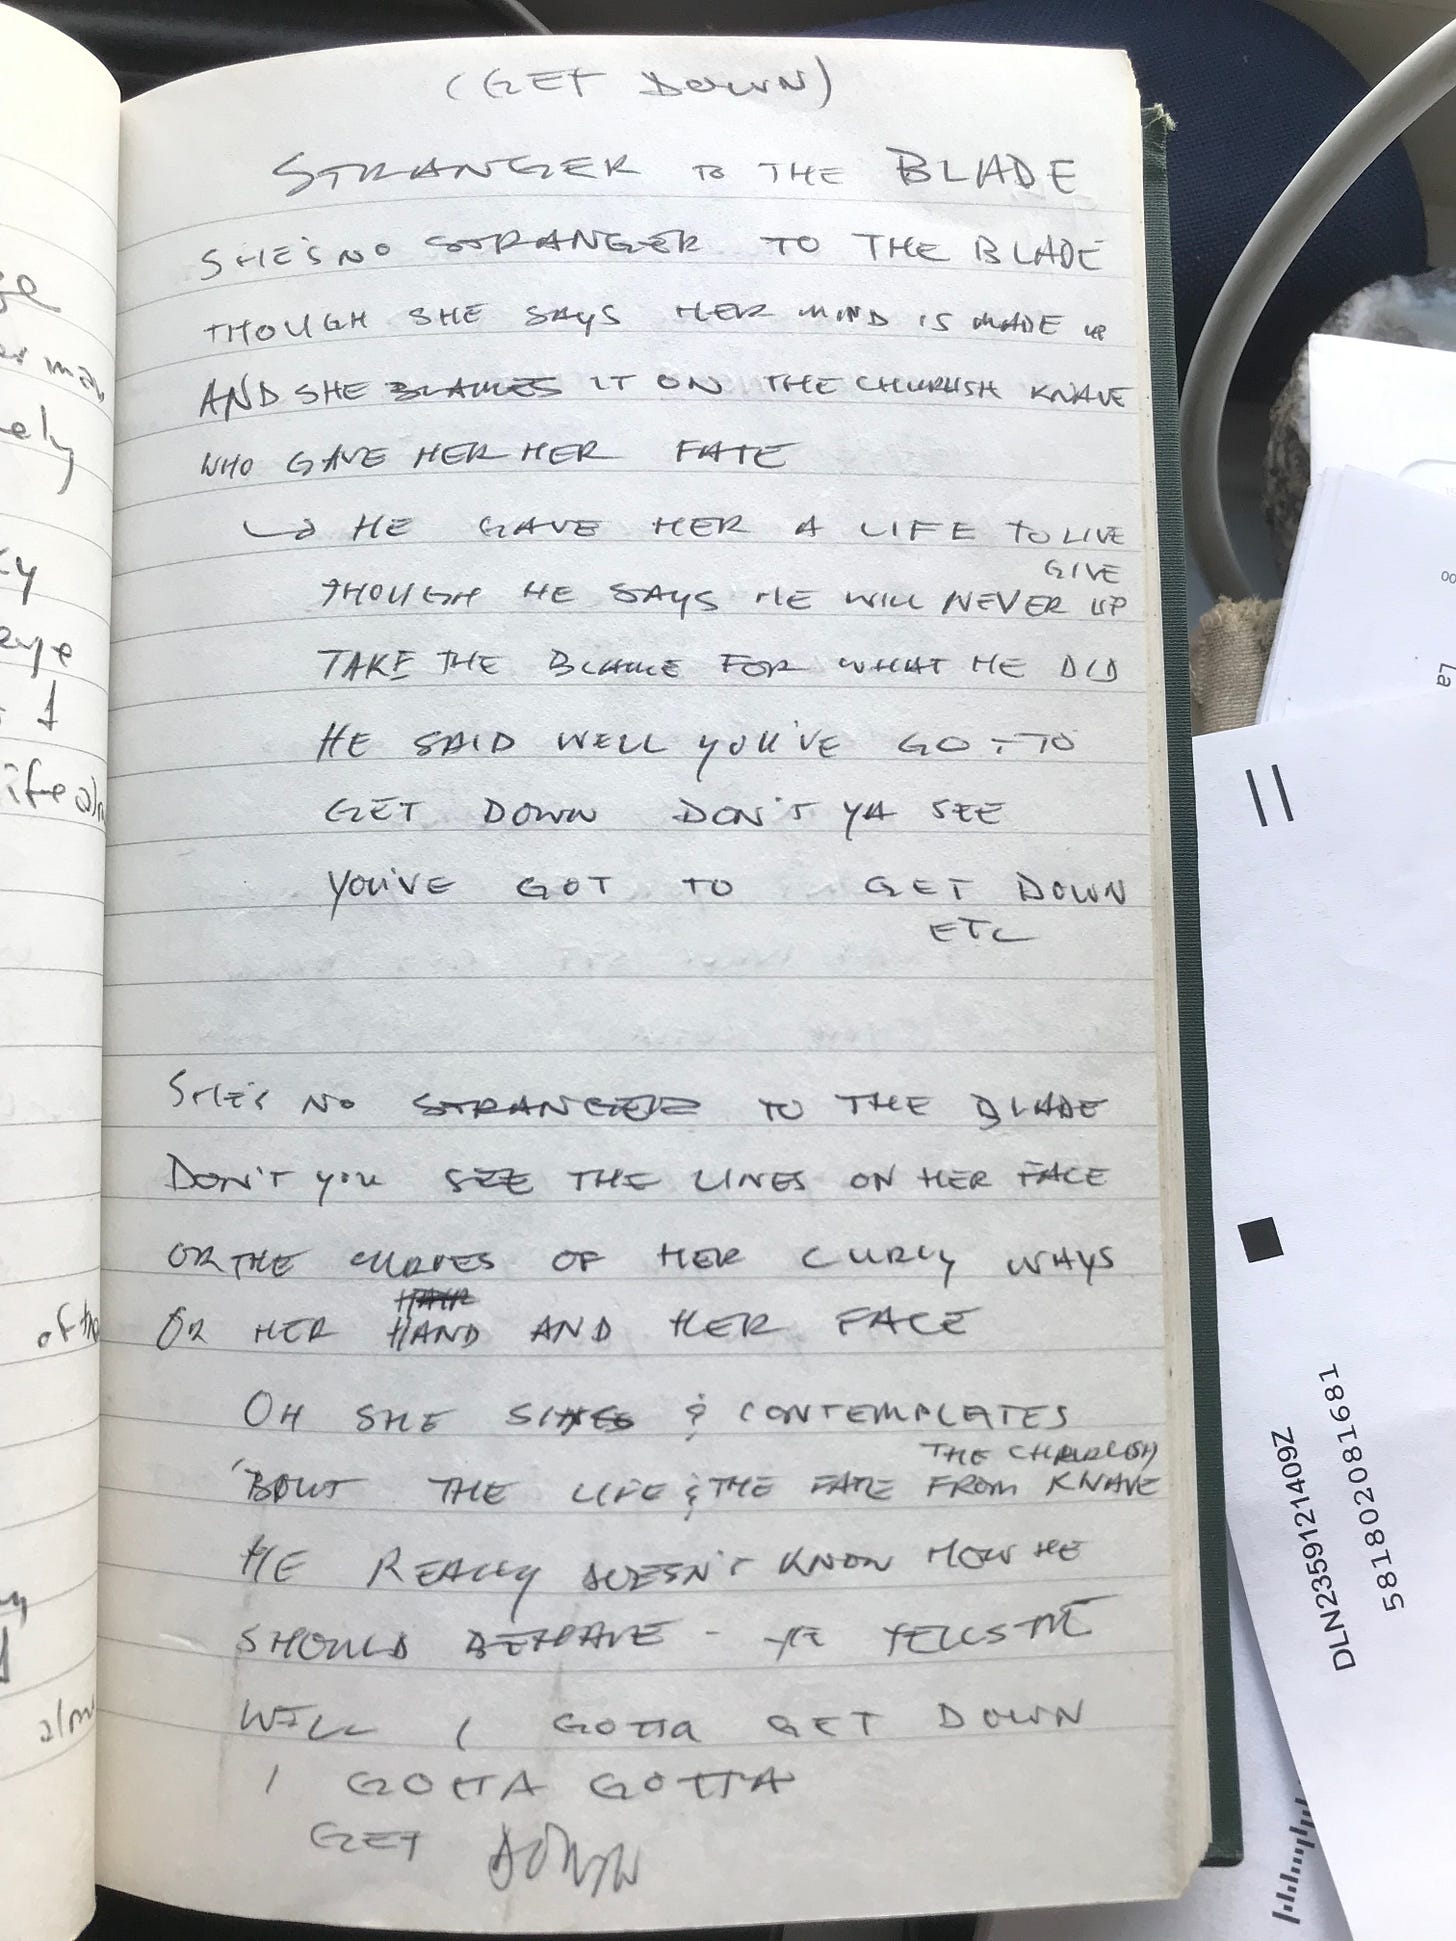 (GET DOWN)
STRANGER TO THE BLADE
SHE'S NO STRANGER TO THE BLADE
THOUGH SHE SAYS HER MIND IS MADE UP
AND SHE BLAMES IT ON THE CHURLISH KNAVE
WHO GAVE HER HER FATE
↳ HE GAVE HER A LIFE TO LIVE
GIVE
THOUGH HE SAYS HE WILL NEVER UP
TAKE THE BLAME FOR WHAT HE DID
HE SAID WELL YOU'VE GOT TO
GET DOWN DON'T YA SEE
YOU'VE GOT TO GET DOWN
ETC
SHE'S NO STRANGER TO THE BLADE
DON'T YOU SEE THE LINES ON HER FACE
OR THE CURVES OF HER CURLY WAYS
HAIR
OR HER HAND AND HER FACE
OH SHE & CONTEMPLATES
THE CHURLISH
'BOUT THE LIFE & THE FATE FROM KNAVE
HE REALLY DOESN'T KNOW HOW HE
SHOULD BEHAVE - HE TELLS ME
WELL I GOTTA GET DOWN
I GOTTA GOTTA
GET DOWN
ely
ife
of the
alm
La
DLN2359121409Z
581802081681